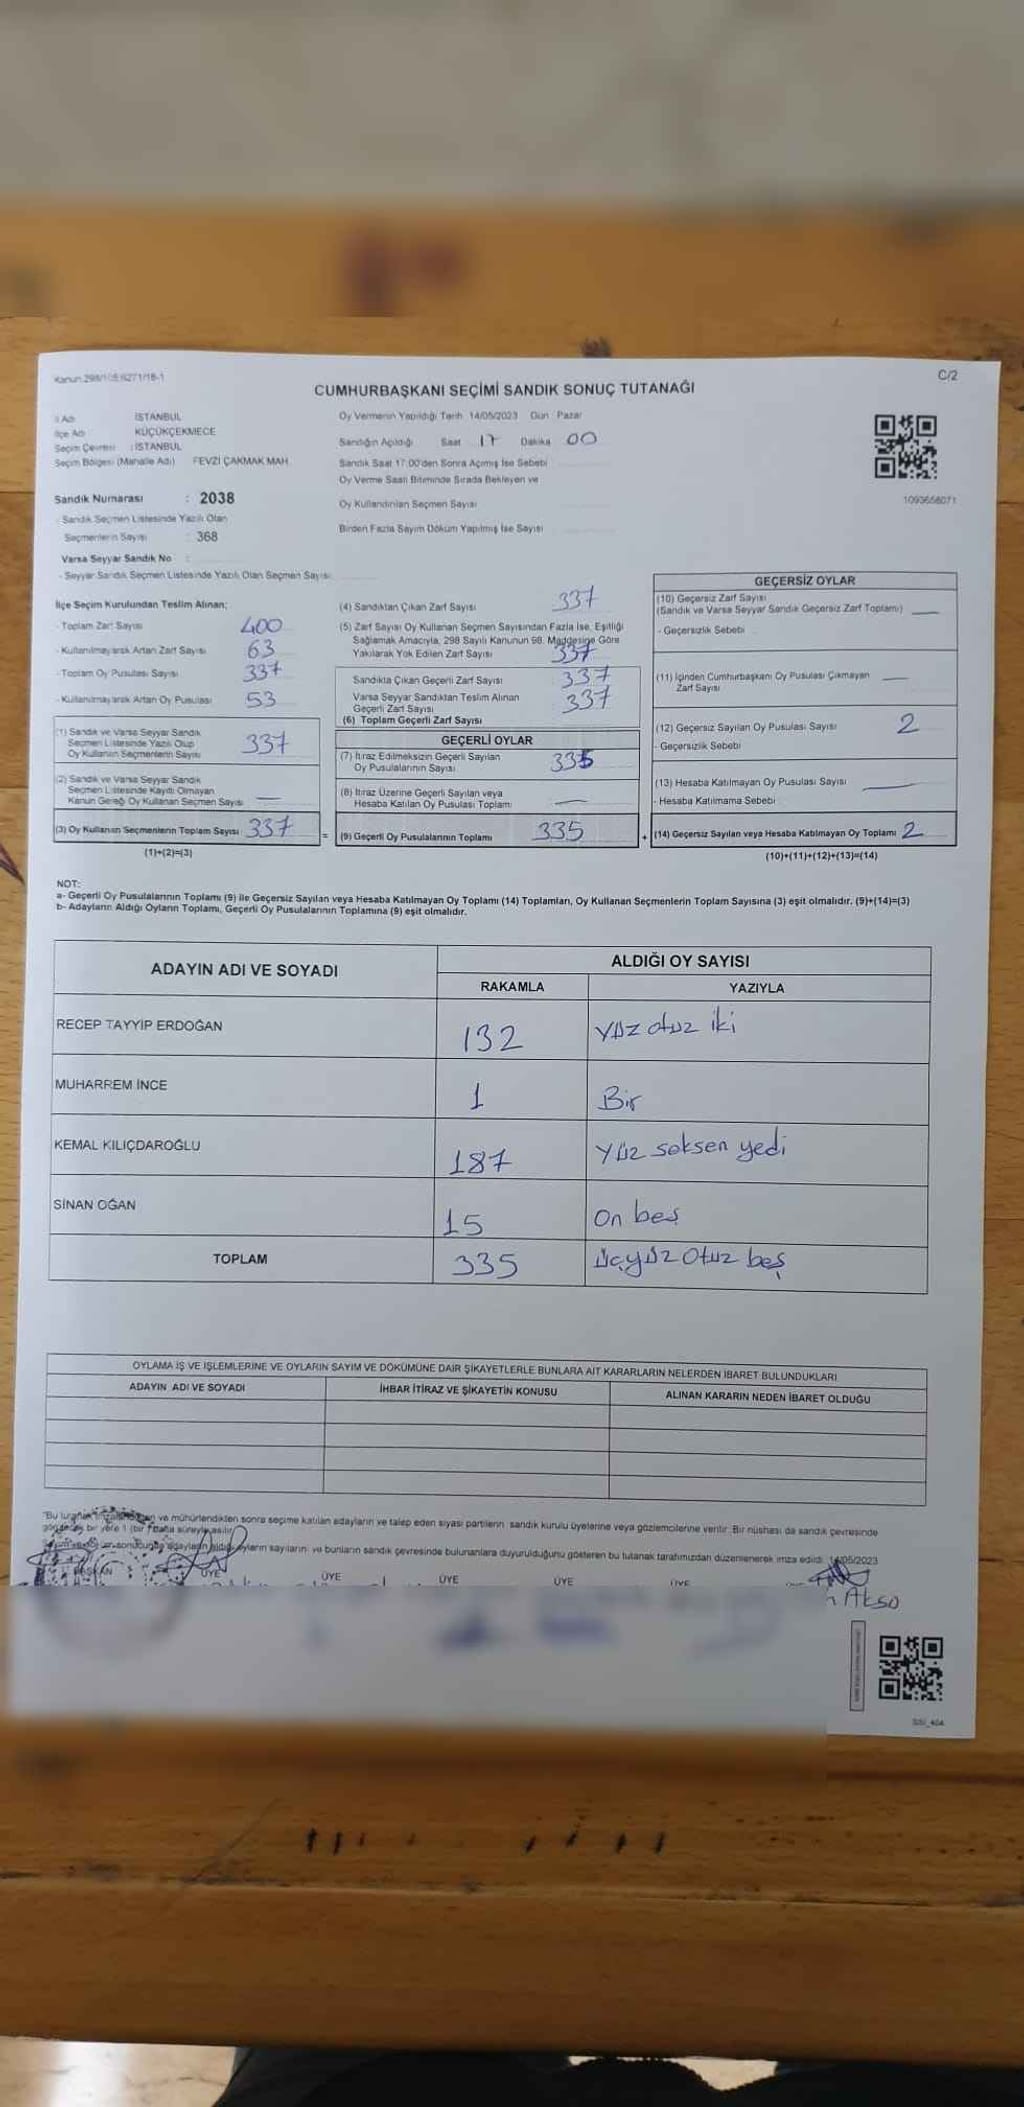 Kanun 298/105;6271/18-1
C/2
CUMHURBAŞKANI SEÇİMİ SANDIK SONUÇ TUTANAĞI
İl Adı İSTANBUL
İlçe Adı KÜÇÜKÇEKMECE
Seçim Çevresi : İSTANBUL
Seçim Bölgesi (Mahalle Adı) FEVZİ ÇAKMAK MAH.
Sandık Numarası : 2038
- Sandık Seçmen Listesinde Yazılı Olan
Seçmenlerin Sayısı : 368
Varsa Seyyar Sandık No :
- Seyyar Sandık Seçmen Listesinde Yazılı Olan Seçmen Sayısı
Oy Vermenin Yapıldığı Tarih 14/05/2023 Gün Pazar
Sandığın Açıldığı Saat 17 Dakika 00
Sandık Saat 17:00'den Sonra Açılmış İse Sebebi
Oy Verme Saati Bitiminde Sırada Bekleyen ve
Oy Kullandırılan Seçmen Sayısı
Birden Fazla Sayım Döküm Yapılmış İse Sayısı
1093658071
İlçe Seçim Kurulundan Teslim Alınan;
- Toplam Zarf Sayısı 400
- Kullanılmayarak Artan Zarf Sayısı 63
- Toplam Oy Pusulası Sayısı 337
- Kullanılmayarak Artan Oy Pusulası 53
(1) Sandık ve Varsa Seyyar Sandık
Seçmen Listesinde Yazılı Olup
Oy Kullanan Seçmenlerin Sayısı 337
(2) Sandık ve Varsa Seyyar Sandık
Seçmen Listesinde Kaydı Olmayan
Kanun Gereği Oy Kullanan Seçmen Sayısı —
(3) Oy Kullanan Seçmenlerin Toplam Sayısı 337
(1)+(2)=(3)
(4) Sandıktan Çıkan Zarf Sayısı 337
(5) Zarf Sayısı Oy Kullanan Seçmen Sayısından Fazla İse, Eşitliği
Sağlamak Amacıyla, 298 Sayılı Kanunun 98. Maddesine Göre
Yakılarak Yok Edilen Zarf Sayısı 337
Sandıkta Çıkan Geçerli Zarf Sayısı 337
Varsa Seyyar Sandıktan Teslim Alınan
Geçerli Zarf Sayısı 337
(6) Toplam Geçerli Zarf Sayısı
GEÇERLİ OYLAR
(7) İtiraz Edilmeksizin Geçerli Sayılan
Oy Pusulalarının Sayısı 335
(8) İtiraz Üzerine Geçerli Sayılan veya
Hesaba Katılan Oy Pusulası Toplamı —
= (9) Geçerli Oy Pusulalarının Toplamı 335
GEÇERSİZ OYLAR
(10) Geçersiz Zarf Sayısı
(Sandık ve Varsa Seyyar Sandık Geçersiz Zarf Toplamı) —
- Geçersizlik Sebebi
(11) İçinden Cumhurbaşkanı Oy Pusulası Çıkmayan —
Zarf Sayısı
(12) Geçersiz Sayılan Oy Pusulası Sayısı 2
- Geçersizlik Sebebi
(13) Hesaba Katılmayan Oy Pusulası Sayısı —
- Hesaba Katılmama Sebebi
+ (14) Geçersiz Sayılan veya Hesaba Katılmayan Oy Toplamı 2
(10)+(11)+(12)+(13)=(14)
NOT:
a- Geçerli Oy Pusulalarının Toplamı (9) ile Geçersiz Sayılan veya Hesaba Katılmayan Oy Toplamı (14) Toplamları, Oy Kullanan Seçmenlerin Toplam Sayısına (3) eşit olmalıdır. (9)+(14)=(3)
b- Adayların Aldığı Oyların Toplamı, Geçerli Oy Pusulalarının Toplamına (9) eşit olmalıdır.
ADAYIN ADI VE SOYADI
ALDIĞI OY SAYISI
RAKAMLA YAZIYLA
RECEP TAYYİP ERDOĞAN 132 yüz otuz iki
MUHARREM İNCE 1 Bir
KEMAL KILIÇDAROĞLU 187 yüz seksen yedi
SİNAN OĞAN 15 On beş
TOPLAM 335 üçyüz otuz beş
OYLAMA İŞ VE İŞLEMLERİNE VE OYLARIN SAYIM VE DÖKÜMÜNE DAİR ŞİKAYETLERLE BUNLARA AİT KARARLARIN NELERDEN İBARET BULUNDUKLARI
ADAYIN ADI VE SOYADI İHBAR İTİRAZ VE ŞİKAYETİN KONUSU ALINAN KARARIN NEDEN İBARET OLDUĞU
"Bu ve mühürlendikten sonra seçime katılan adayların ve talep eden siyasi partilerin sandık kurulu üyelerine veya gözlemcilerine verilir. Bir nüshası da sandık çevresinde
bir yere 1 (bir) hafta süreyle asılır.
oyların sayılarını ve bunların sandık çevresinde bulunanlara duyurulduğunu gösteren bu tutanak tarafımızdan düzenlenerek imza edildi. 14/05/2023
BAŞKAN ÜYE ÜYE ÜYE ÜYE ÜYE
Akso
SSI_404